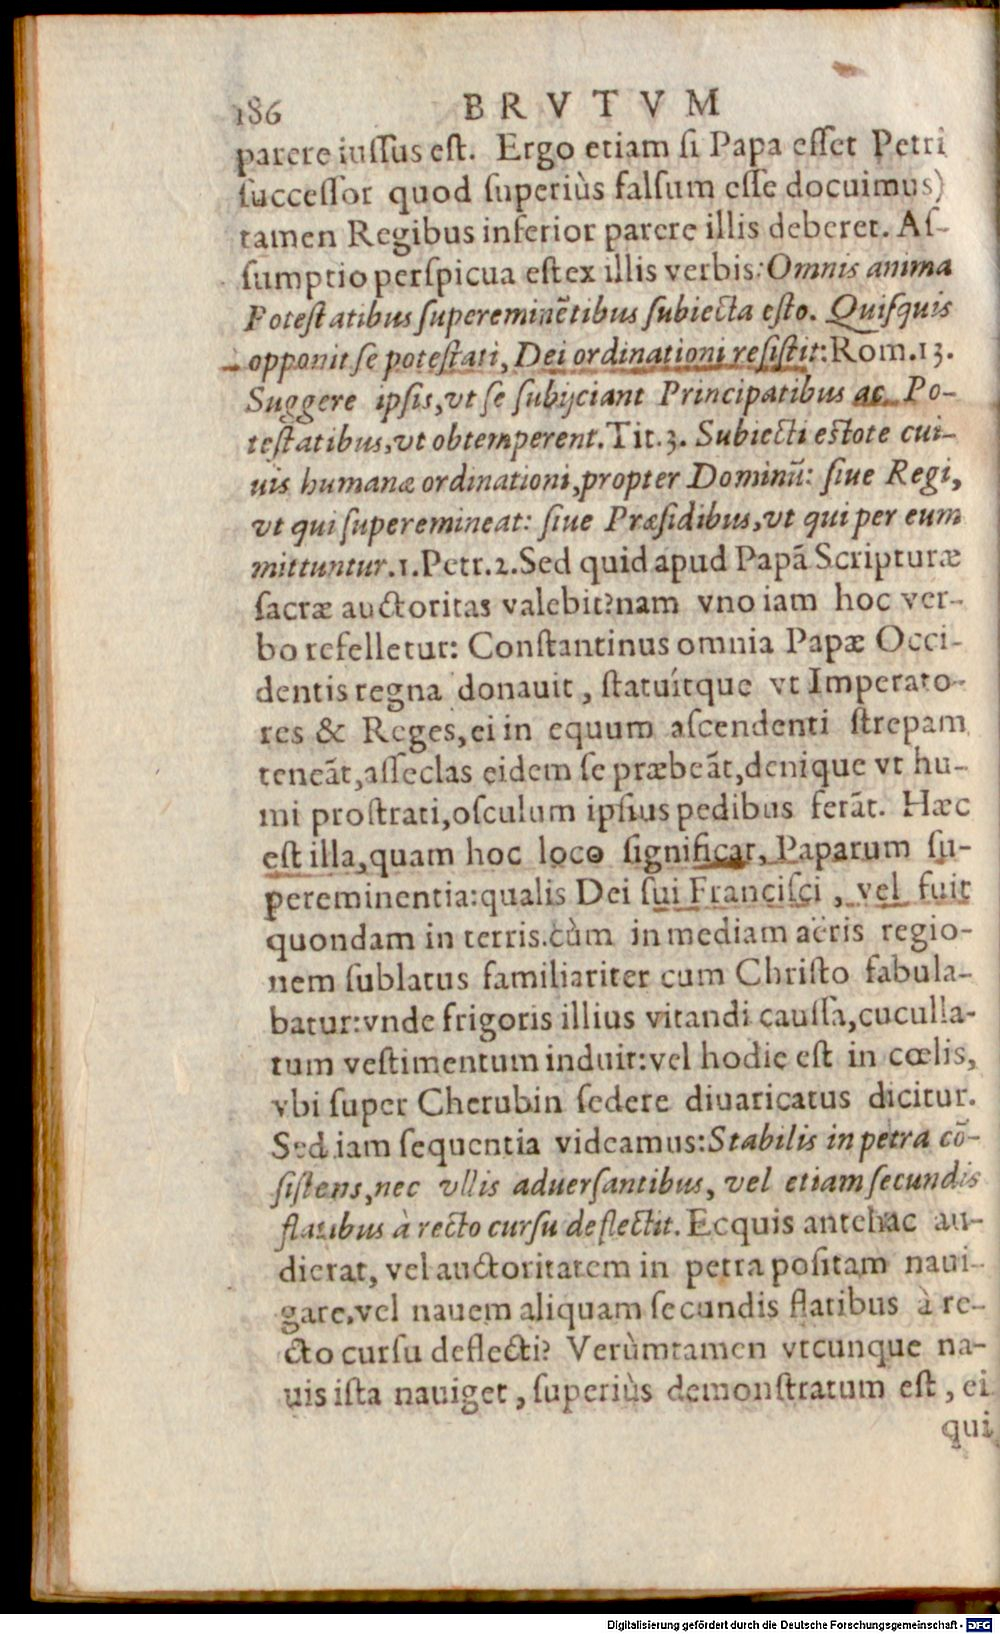 186 BRVTVM
parere iuſſus eſt. Ergo etiam ſi Papa eſſet Petri
ſucceſſor quod ſuperiùs falſum eſſe docuimus)
tamen Regibus inferior parere illis deberet. Aſ-
ſumptio perſpicua eſt ex illis verbis: Omnis anima
Poteſtatibus ſupereminẽtibus ſubiecta eſto. Quiſquis
opponit ſe poteſtati, Dei ordinationi reſiſtit: Rom. 13.
Suggere ipſis, vt ſe ſubijciant Principatibus ac Po-
teſtatibus, vt obtemperent. Tit. 3. Subiecti eſtote cui-
uis humanæ ordinationi, propter Dominũ: ſiue Regi,
vt qui ſuperemineat: ſiue Præſidibus, vt qui per eum
mittuntur. 1. Petr. 2. Sed quid apud Papã Scripturæ
ſacræ auctoritas valebit? nam vno iam hoc ver-
bo refelletur: Conſtantinus omnia Papæ Occi-
dentis regna donauit, ſtatuítque vt Imperato-
res & Reges, ei in equum aſcendenti ſtrepam
teneãt, aſſeclas eidem ſe præbeãt, denique vt hu-
mi proſtrati, oſculum ipſius pedibus ferãt. Hæc
eſt illa, quam hoc loco ſignificat, Paparum ſu-
pereminentia: qualis Dei ſui Franciſci, vel fuit
quondam in terris. cùm in mediam aëris regio-
nem ſublatus familiariter cum Chriſto fabula-
batur: vnde frigoris illius vitandi cauſſa, cuculla-
tum veſtimentum induit: vel hodie eſt in cœlis,
vbi ſuper Cherubin ſedere diuaricatus dicitur.
Sed iam ſequentia videamus: Stabilis in petra cõ-
ſiſtens, nec vllis aduerſantibus, vel etiam ſecundis
flatibus à recto curſu deflectit. Ecquis antehac au-
dierat, vel auctoritatem in petra poſitam naui-
gare, vel nauem aliquam ſecundis flatibus à re-
cto curſu deflecti? Verùmtamen vtcunque na-
uis iſta nauiget, ſuperiùs demonſtratum eſt, ei
qui
Digitalisierung gefördert durch die Deutsche Forschungsgemeinschaft - DFG